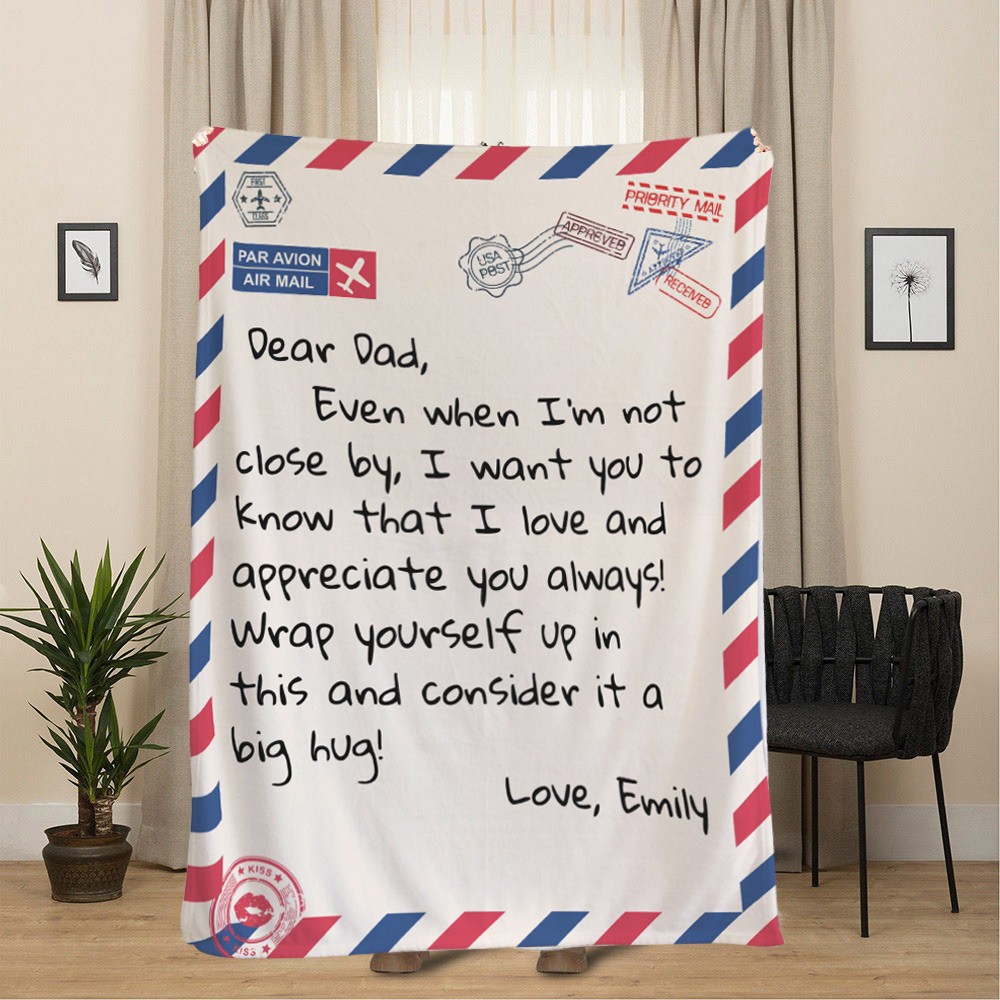 FIRST
CLASS
PAR AVION
AIR MAIL
USA
POST
APPROVED
PRIORITY MAIL
RECEIVED
Dear Dad,
Even when I'm not
close by, I want you to
know that I love and
appreciate you always!
Wrap yourself up in
this and consider it a
big hug!
Love, Emily
KISS
KISS